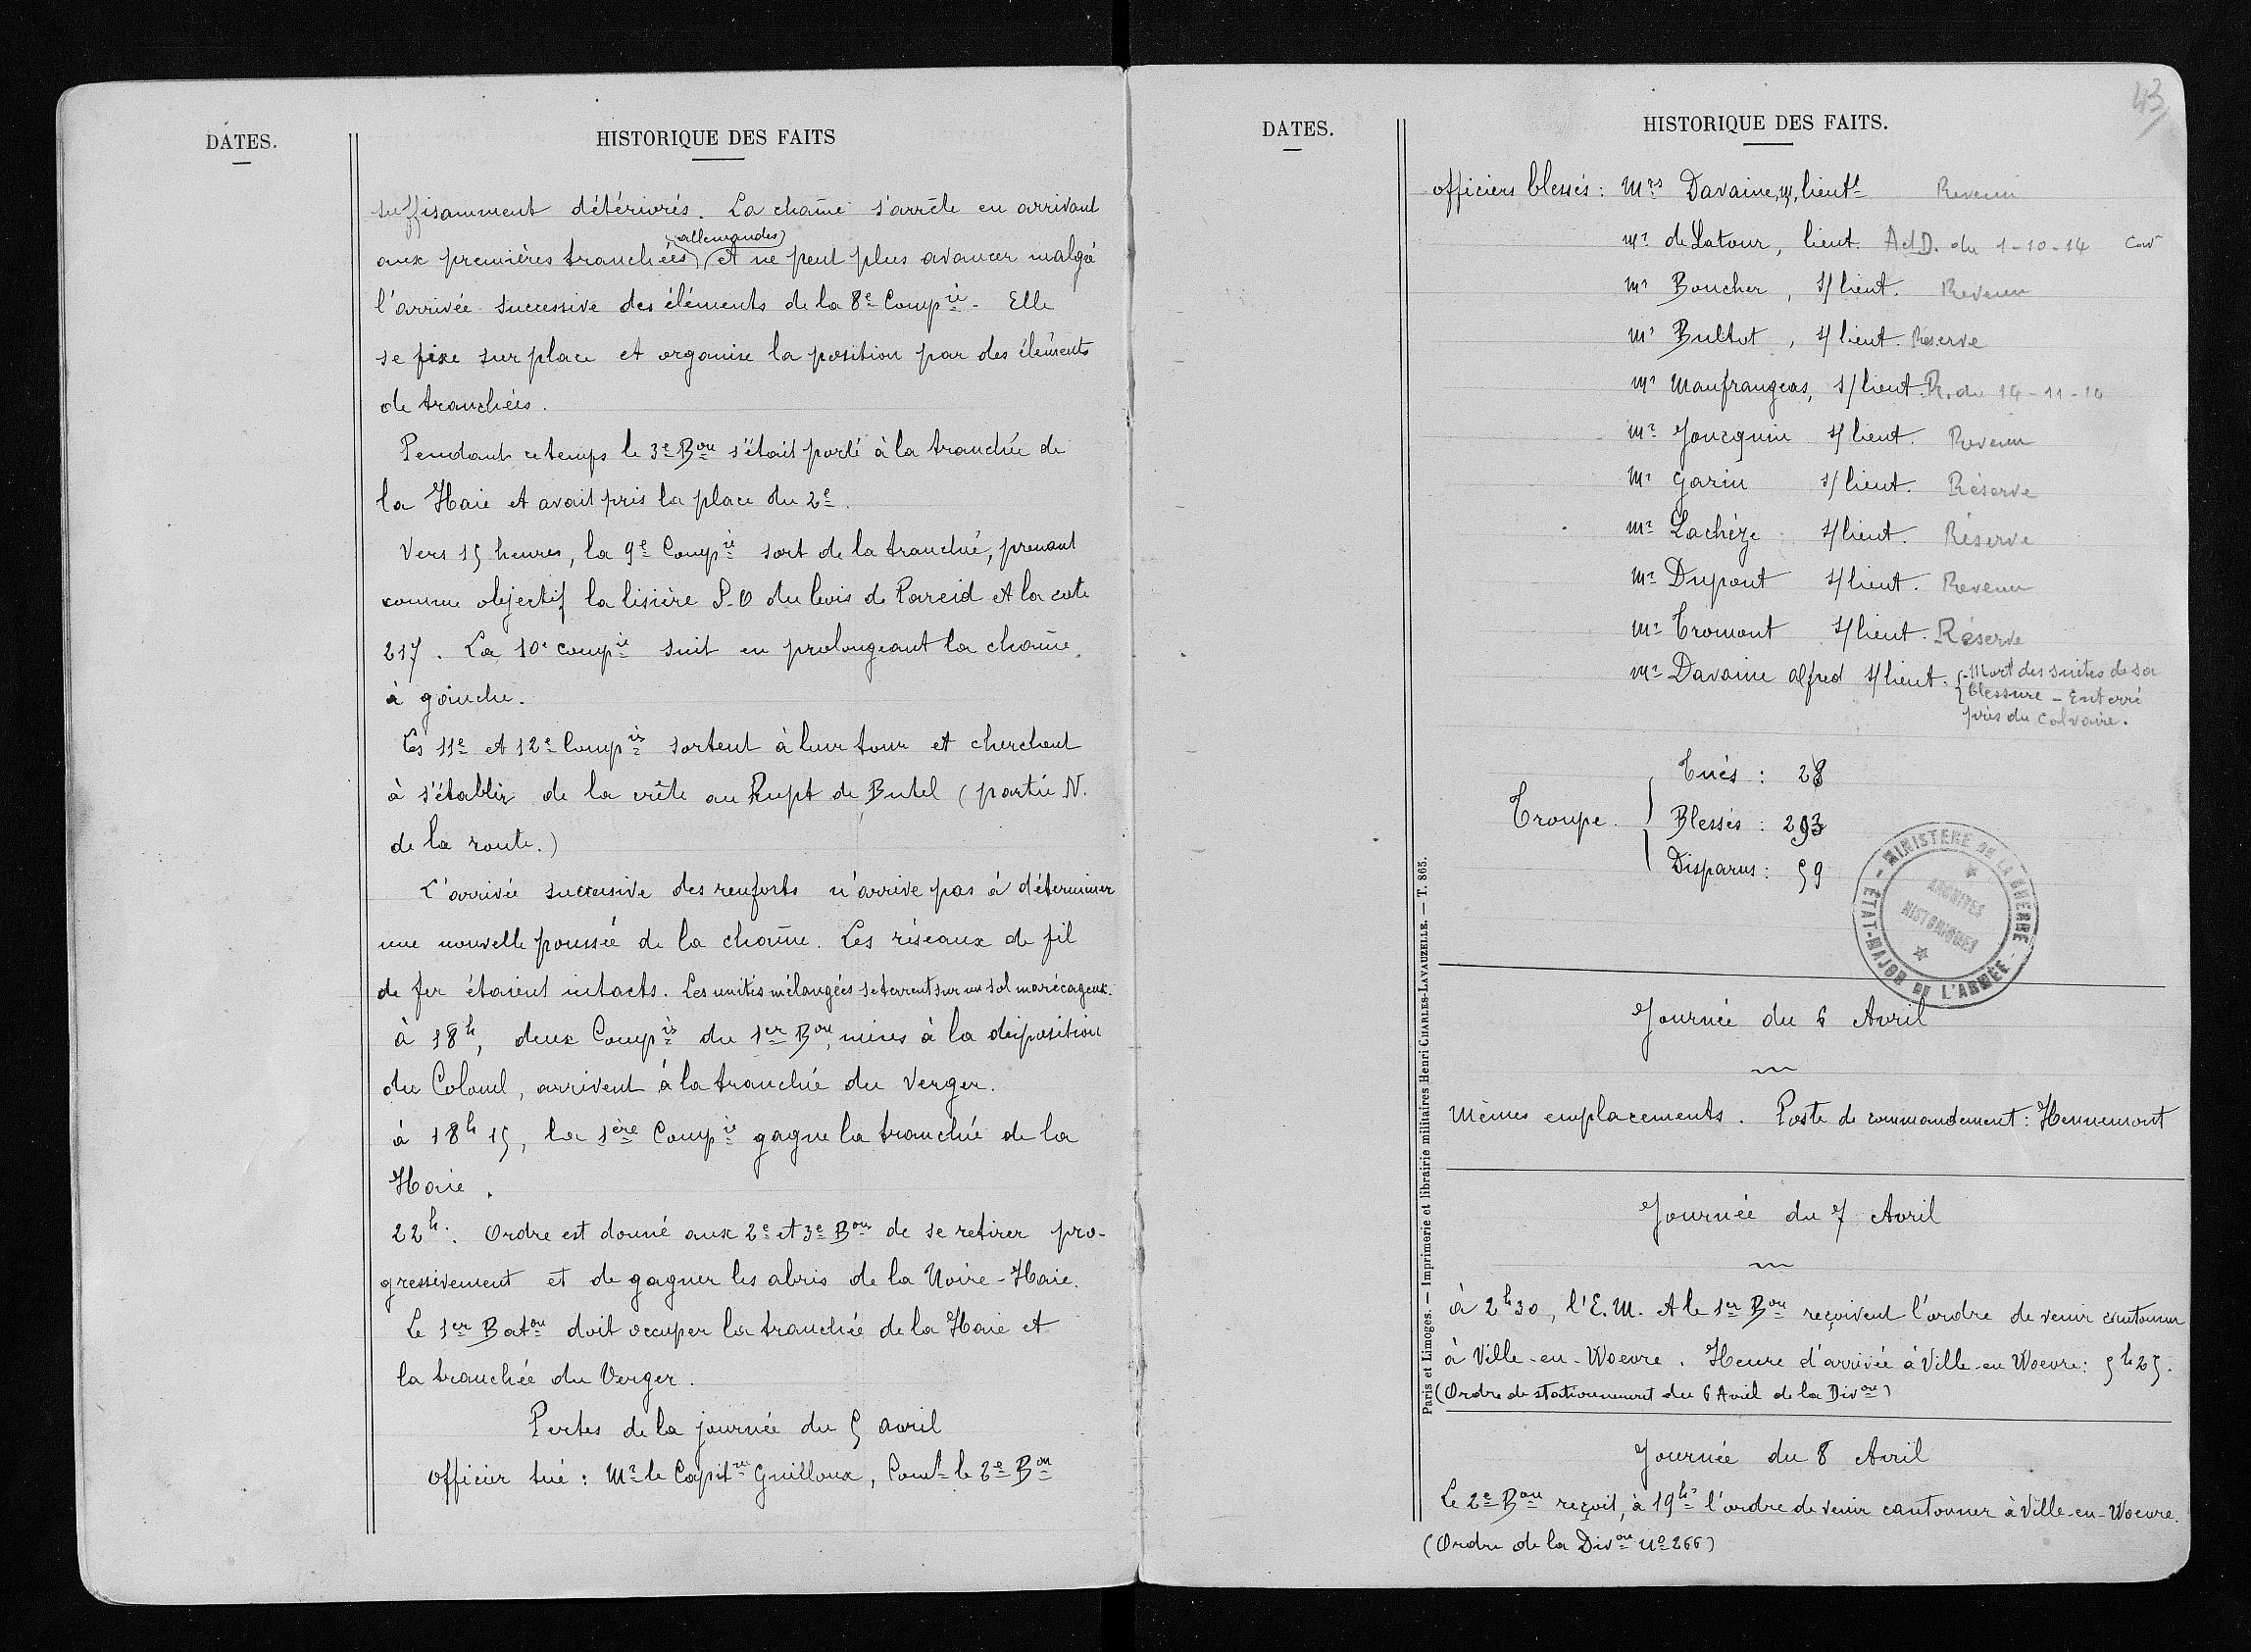 DATES.
HISTORIQUE DES FAITS
suffisamment détériorés. La chaîne s'arrête en arrivant
allemandes
aux premières tranchées et ne peut plus avancer malgré
l'arrivée successive des éléments de la 8e Compie. Elle
se fixe sur place et organise la position par des éléments
de tranchées.
Pendant ce temps le 3e Bon s'était porté à la tranchée de
la Haie et avait pris la place du 2e.
Vers 15 heures, la 9e Compie sort de la tranchée, prenant
comme objectif la lisière S-O du bois de Pareid et la cote
217. La 10e Compie suit en prolongeant la chaîne
à gauche.
Les 11e et 12e Compies sortent à leur tour et cherchent
à s'établir de la crête au Rupt de Butel (partie N.
de la route.)
L'arrivée successive des renforts n'arrive pas à déterminer
une nouvelle poussée de la chaîne. Les réseaux de fil
de fer étaient intacts. Les unités mélangées se terrent sur un sol marécageux.
à 18h, deux Compies du 1er Bon, mises à la disposition
du Colonel, arrivent à la tranchée du Verger.
à 18h15, la 1ère Compie gagne la tranchée de la
Haie.
22h. Ordre est donné aux 2e et 3e Bons de se retirer pro-
gressivement et de gagner les abris de la Noire-Haie.
Le 1er Baton doit occuper la tranchée de la Haie et
la tranchée du Verger.
Pertes de la journée du 5 avril
Officier tué : Mr le Capitne Guilloux, Comt le 2e Bon
43
DATES.
HISTORIQUE DES FAITS.
officiers blessés : Mrs Davaine, lieutt Revenu
Mr de Latour, lieut. Act D. du 1-10-14
Mr Boucher, s/lieut. Revenu
Mr Bultot, s/lieut. Réserve
Mr Maufrangeas, s/lieut. R. du 14-11-14
Mr Joucquin s/lieut. Revenu
Mr Garin s/lieut. Réserve
Mr Lachèze s/lieut. Réserve
Mr Dupont s/lieut. Revenu
Mr Tromont s/lieut. Réserve
Mr Davaine Alfred s/lieut. Mort des suites de sa
blessure - Enterré
près du calvaire.
Tués : 28
Troupe. Blessés : 293
Disparus : 59
MINISTERE DE LA GUERRE
ARCHIVES
HISTORIQUES
ÉTAT-MAJOR DE L'ARMÉE
Journée du 6 Avril
Mêmes emplacements. Poste de commandement : Hennemont
Journée du 7 Avril
à 2h30, l'E.M. et le 1er Bon reçoivent l'ordre de venir cantonner
à Ville-en-Woevre. Heure d'arrivée à Ville-en Woevre : 5h25.
(Ordre de stationnement du 6 Avril de la Divon)
Journée du 8 Avril
Le 2e Bon reçoit, à 19hs l'ordre de venir cantonner à Ville-en-Woevre.
(Ordre de la Divon No 266)
Paris et Limoges. — Imprimerie et librairie militaires Henri CHARLES-LAVAUZELLE. — T. 865.